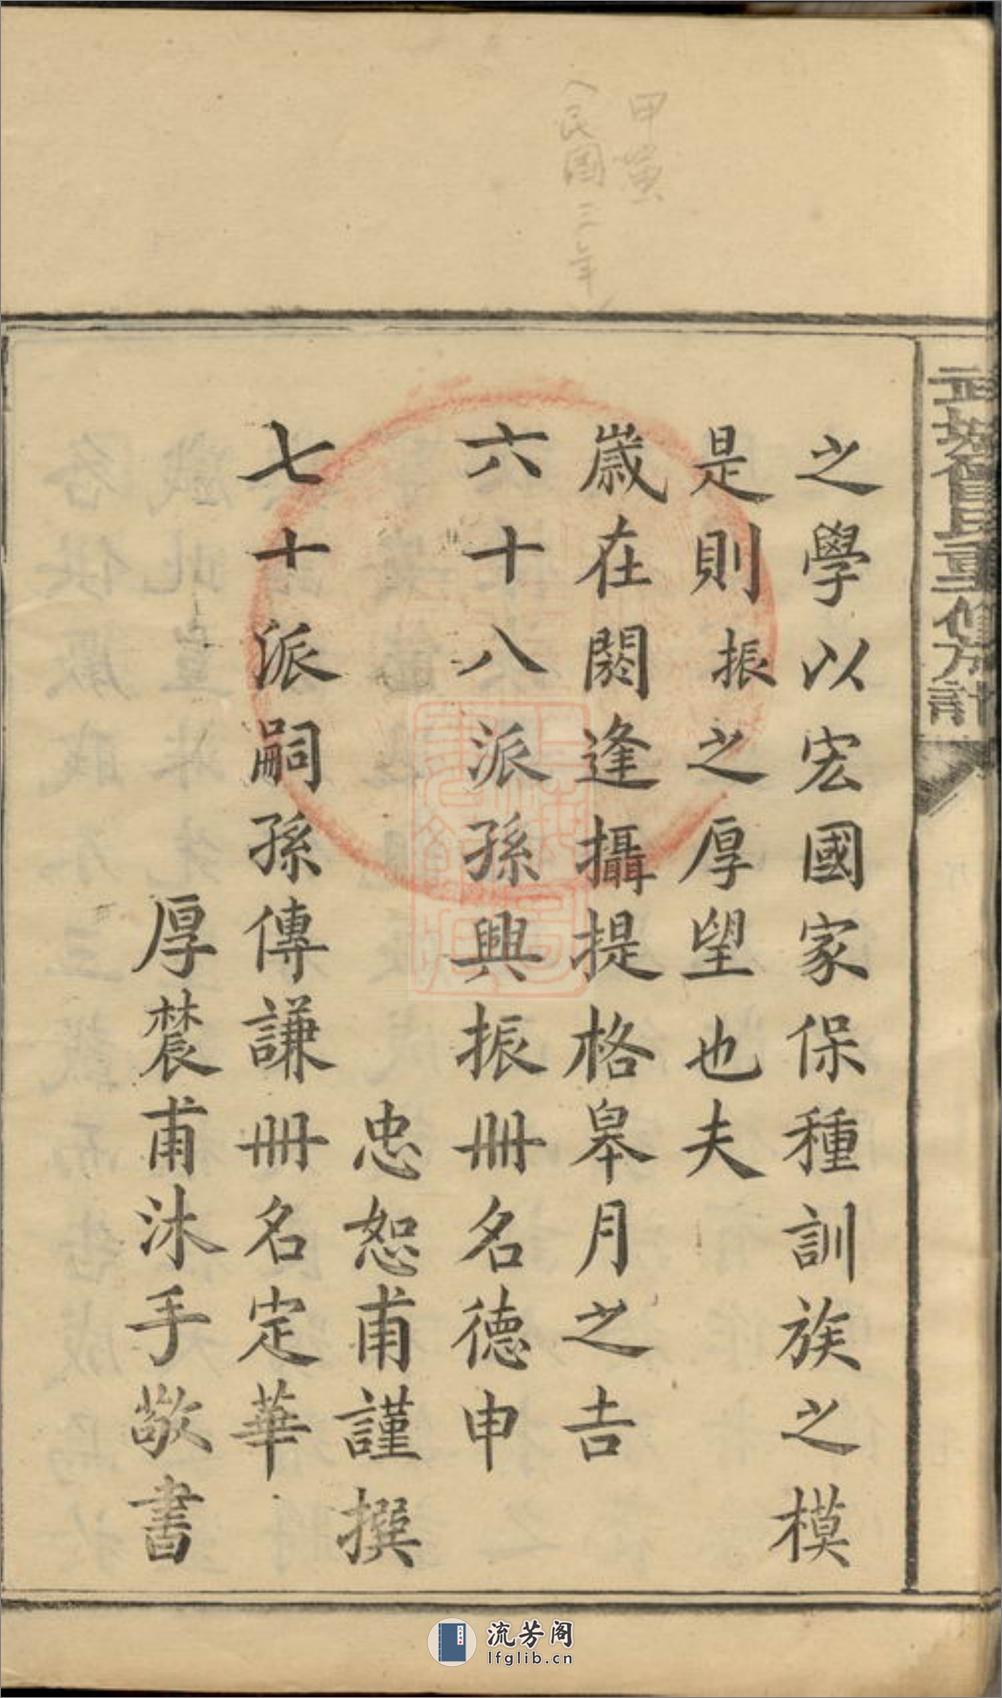 甲寅
(民國三年)
武城曾氏重修族譜
之學以宏國家保種訓族之模
是則振之厚望也夫
歲在閼逢攝提格皋月之吉
六十八派孫興振册名德申
忠恕甫謹撰
七十派嗣孫傳謙册名定華
厚莀甫沐手敬書
流芳阁
lfglib.cn